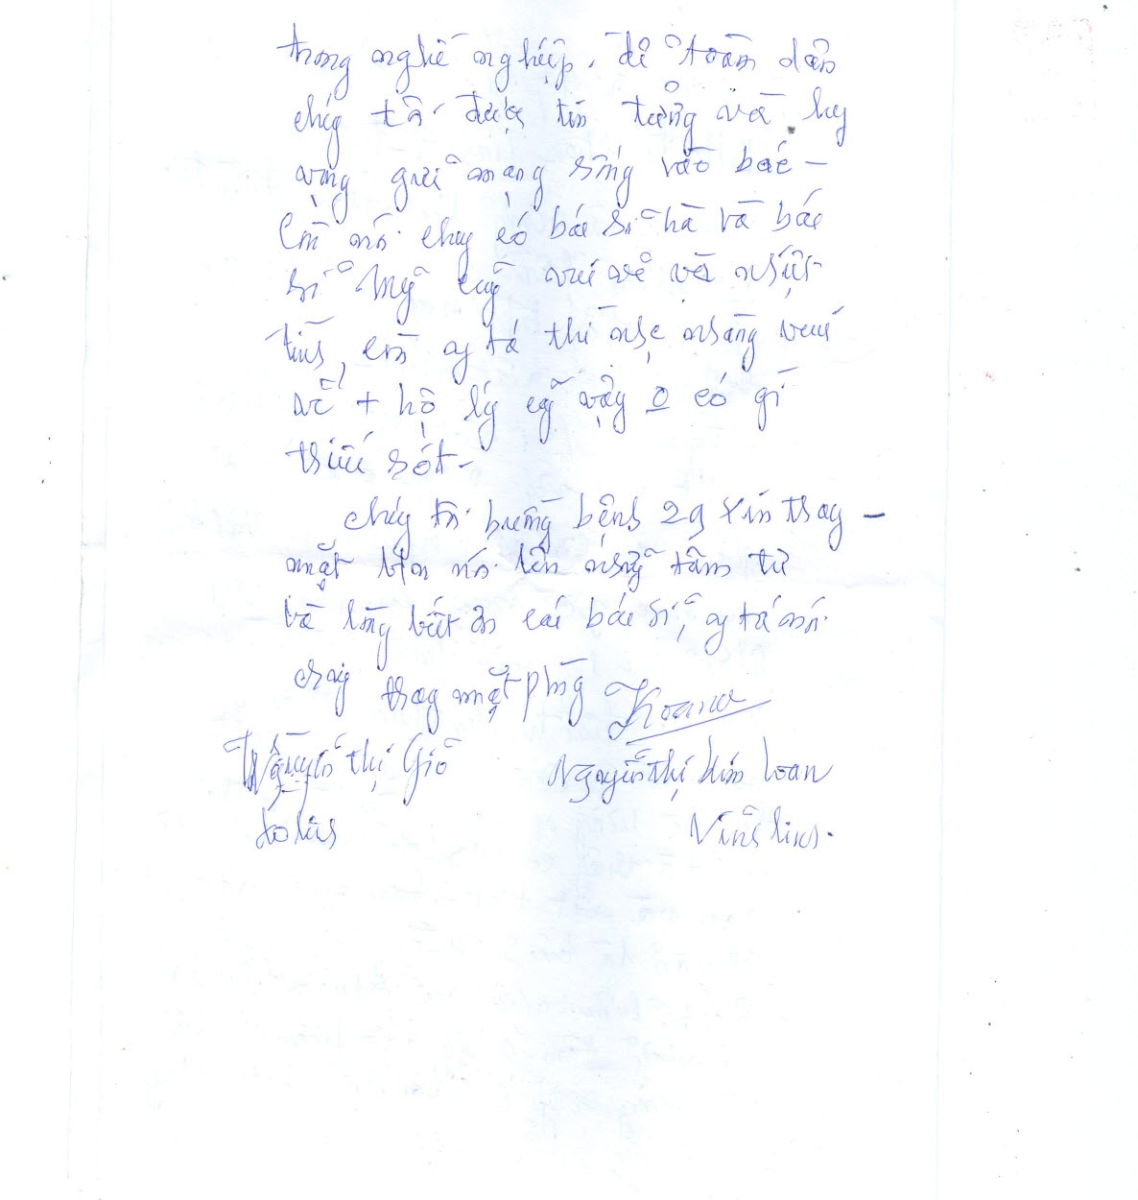 trong nghề nghiệp. để toàn dân
chúng tôi được tin tưởng và hy
vọng gửi mạng sống vào bác -
Còn nói chung có bác sĩ hà và bác
sĩ Mỹ cũng vui vẻ và nhiệt
tình, còn y tá thì nhẹ nhàng vui
vẻ + hộ lý cũng vậy o có gì
thiếu sót -
chúng tôi buồng bệnh 29 xin thay -
mặt nói lên những tâm tư
và lòng biết ơn các bác sĩ, y tá nói
chung thay mặt phòng
Nguyễn thị Nguyễn thị kim loan
Vĩnh linh.